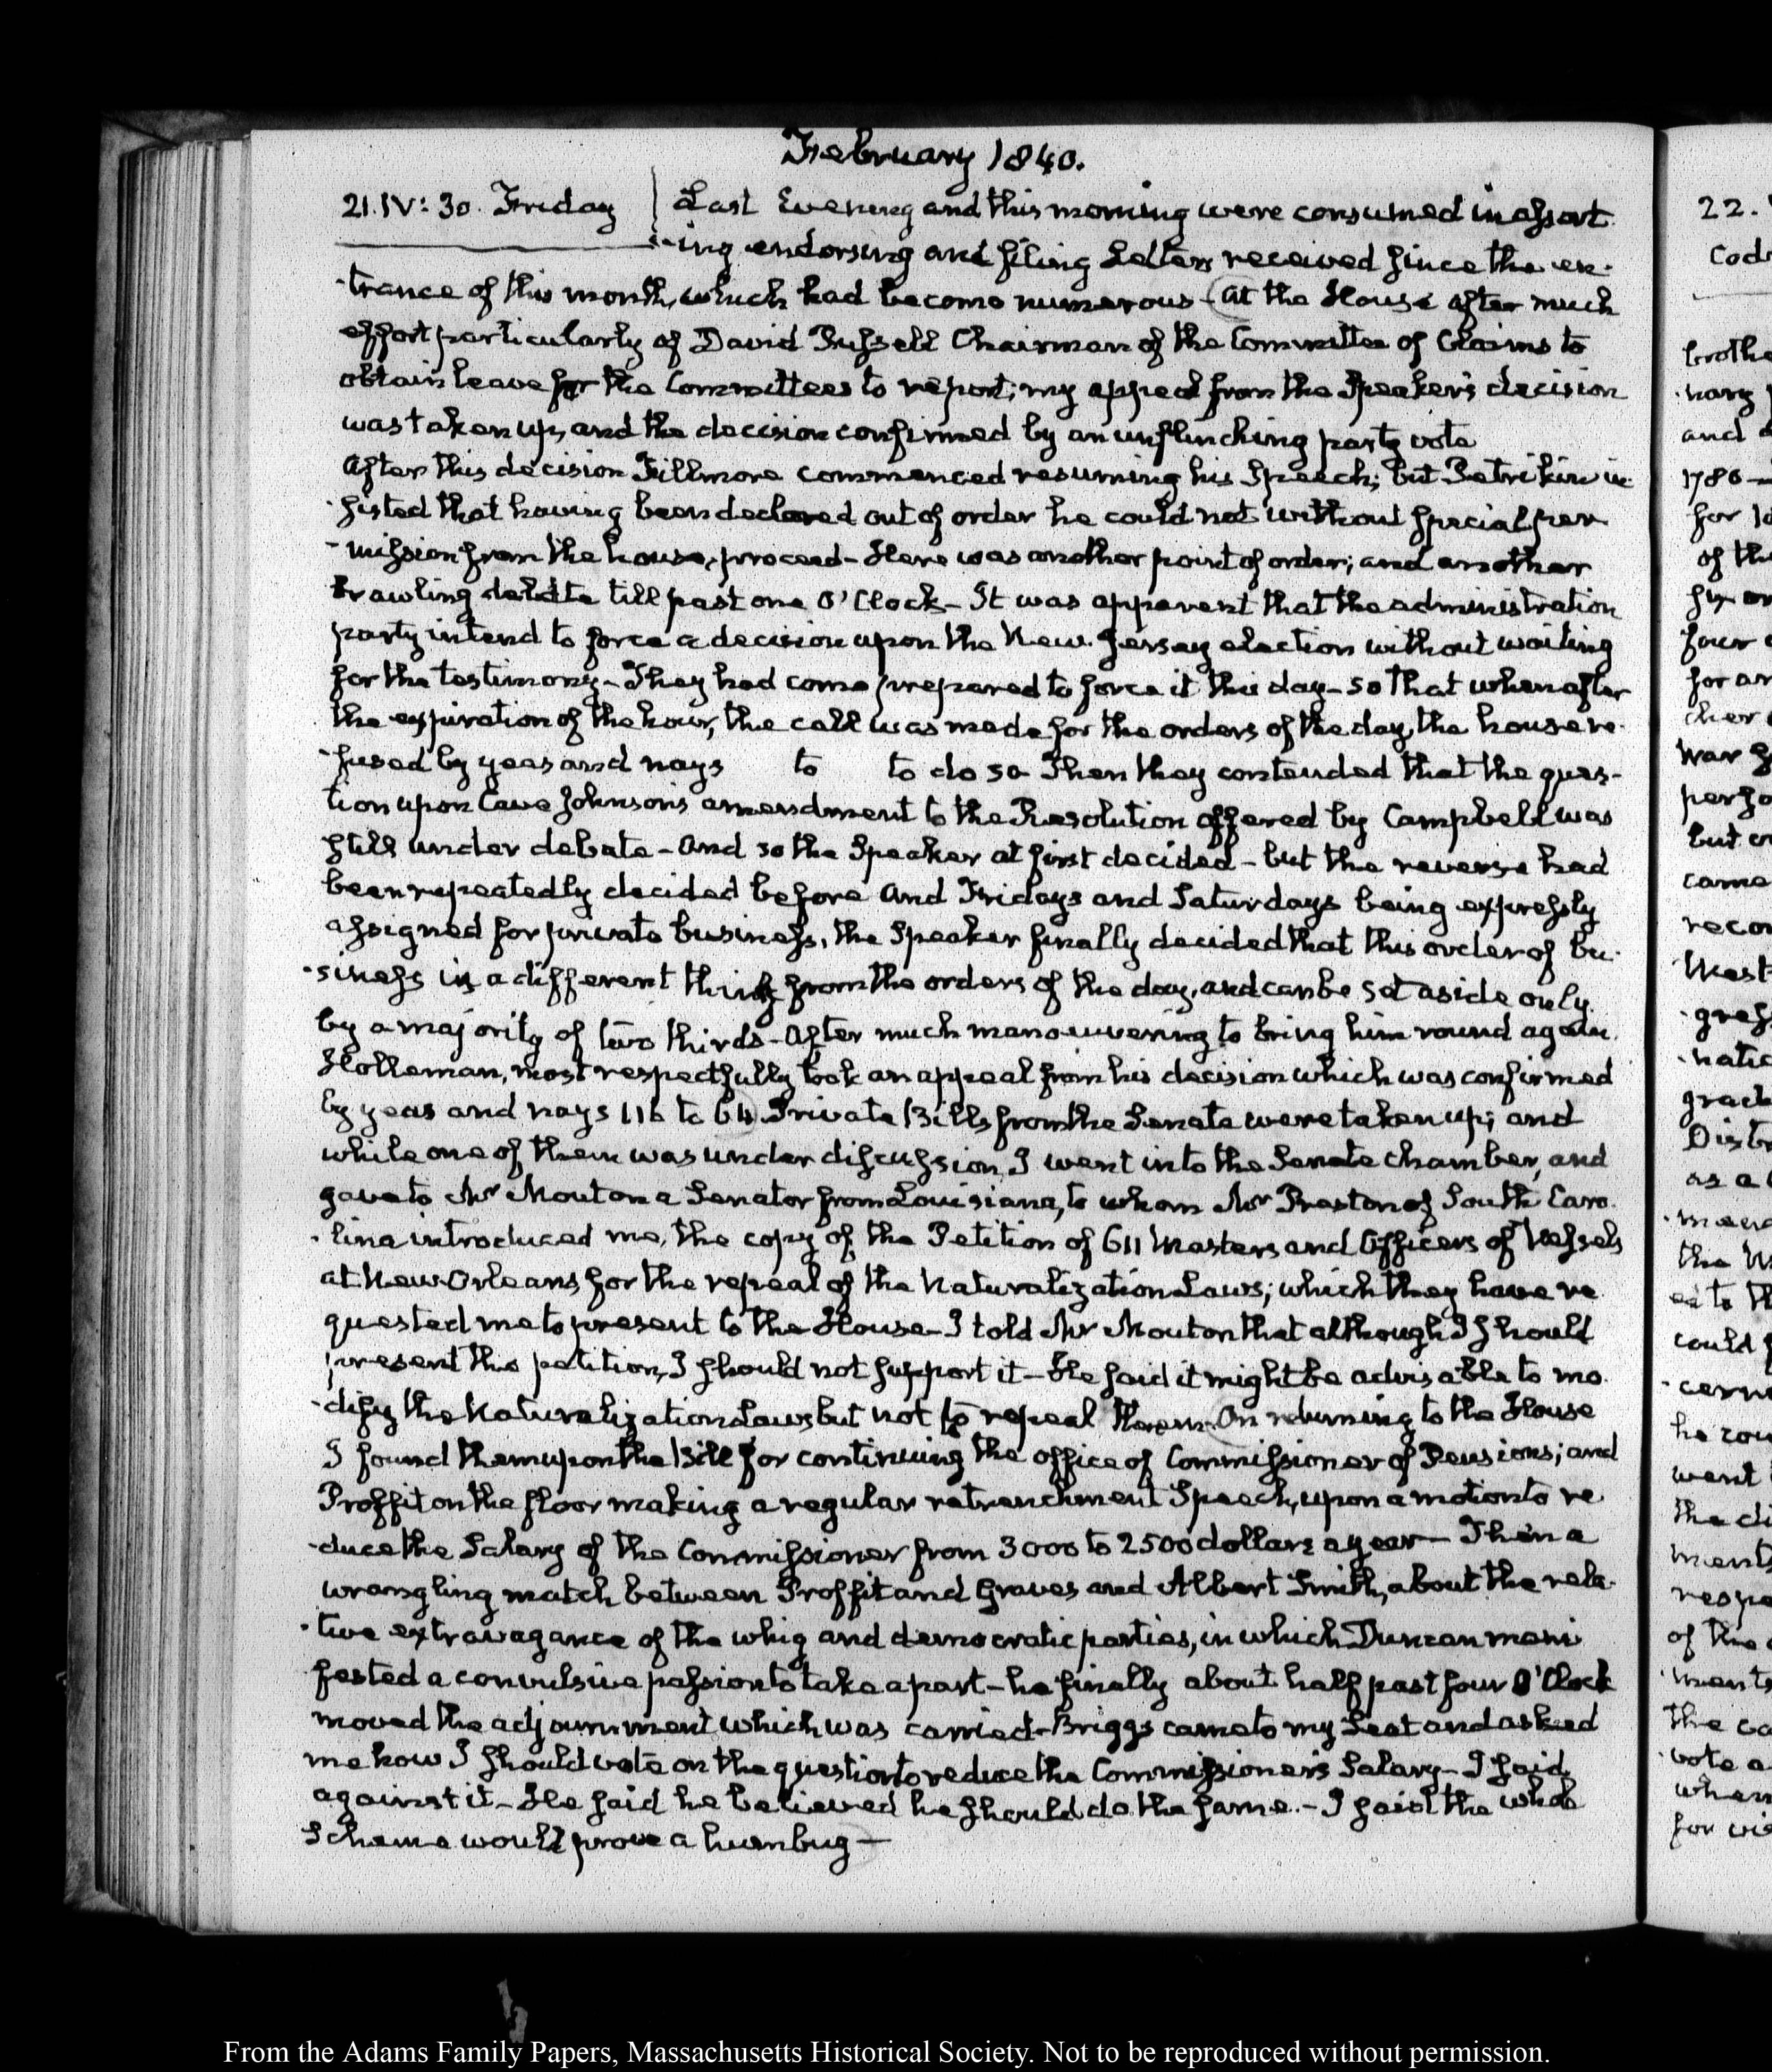 February 1840.
21. IV: 30. Friday Last Evening and this morning were consumed in assort
-ing endorsing and filing Letters received since the en-
-trance of this month, which had become numerous - At the House after much
effort particularly of David Russell Chairman of the Committee of Claims to
obtain leave for the Committees to report; my appeal from the Speaker's decision
was taken up, and the decision confirmed by an unflinching party vote
After this decision Fillmore commenced resuming his Speech; but Petrikin in
-sisted that having been declared out of order he could not without special per
-mission from the house, proceed - Here was another point of order; and another
brawling debate till past one O'Clock - It was apparent that the administration
party intend to force a decision upon the New-Jersey election without waiting
for the testimony - They had come prepared to force it this day - so that when after
the expiration of the hour, the call was made for the orders of the day, the house re-
-fused by yeas and nays to to do so Then they contended that the ques-
tion upon Cave Johnson's amendment to the Resolution offered by Campbell was
still under debate - And so the Speaker at first decided - but the reverse had
been repeatedly decided before And Fridays and Saturdays being expressly
assigned for private business, the Speaker finally decided that this order of bu-
-siness is a different thing from the orders of the day, and can be set aside only
by a majority of two thirds - After much manoeuvering to bring him round again.
Holleman, most respectfully took an appeal from his decision which was confirmed
by yeas and nays 116 to 64. Private Bills from the Senate were taken up; and
while one of them was under discussion, I went into the Senate chamber, and
gave to Mr Mouton a Senator from Louisiana, to whom Mr Preston of South Caro-
-lina introduced me, the copy of the Petition of 611 Masters and Officers of Vessels
at New Orleans, for the repeal of the Naturalization Laws; which they have re
quested me to present to the House - I told Mr Mouton that although I should
present this petition, I should not support it - He said it might be advisable to mo-
-dify the Naturalization Laws but not to repeal them. On returning to the House
I found them upon the Bill for continuing the office of Commissioner of Pensions; and
Proffit on the floor making a regular retrenchment Speech, upon a motion to re
-duce the Salary of the Commissioner from 3000 to 2500 dollars a year - Then a
wrangling match between Proffit and Graves and Albert Smith, about the rela-
-tive extravagance of the whig and democratic parties, in which Duncan mani
fested a convulsive passion to take a part - he finally about half past four O'Clock
moved the adjournment which was carried - Briggs came to my Seat and asked
me how I should vote on the question to reduce the Commissioner's Salary - I said,
against it - He said he believed he should do the same. - I said the whole
Scheme would prove a humbug -
22.
Cod
brothe
-nary
and
1786 -
for
of th
four
for an
cher
war
perfo
but
came
recor
West
-gress
-natio
grad
Distr
as a
the
ed to th
could
-cern
he
went
the di
ments
respe
of the
-ments
the co
-vote a
when
for
From the Adams Family Papers, Massachusetts Historical Society. Not to be reproduced without permission.